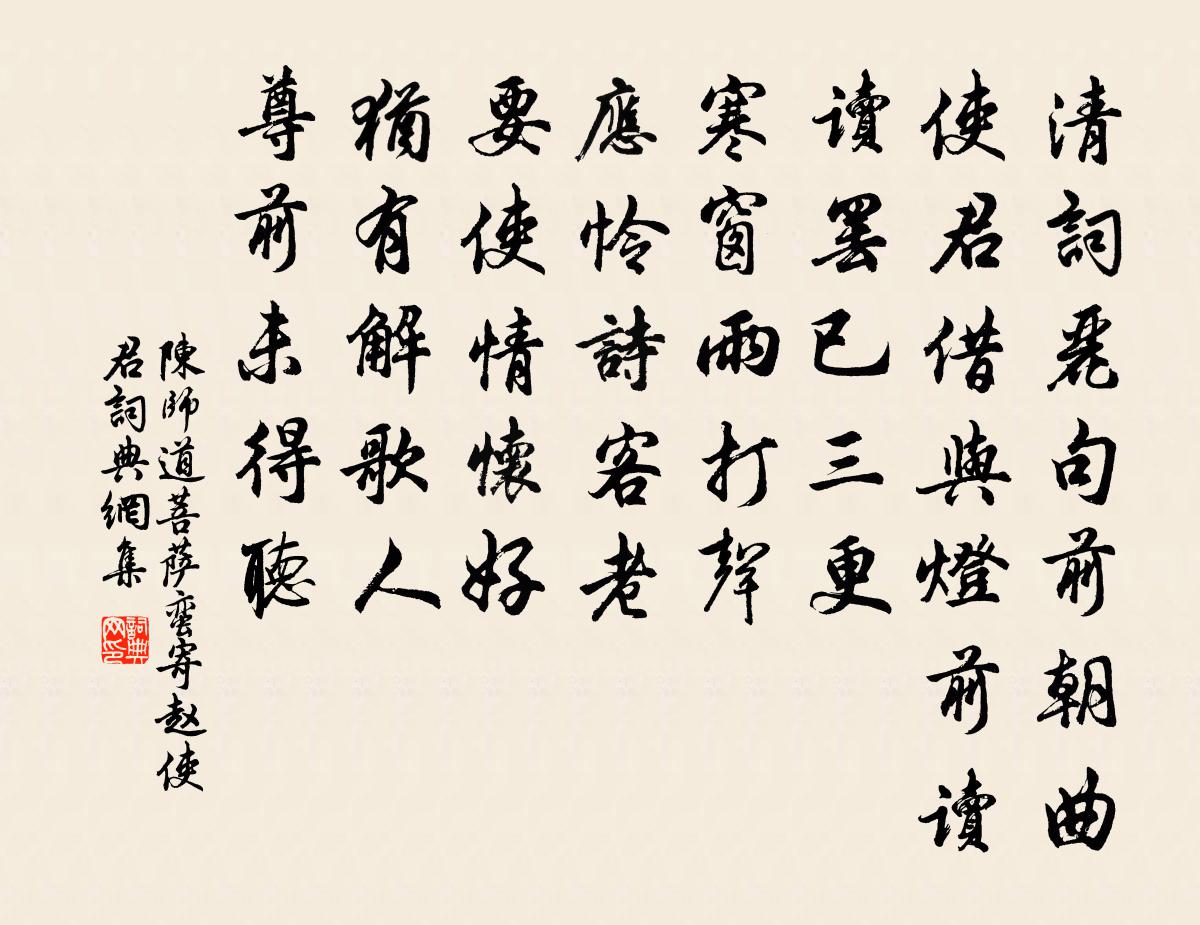 清詞麗句前朝曲
使君借與燈前讀
讀罷已三更
寒窗雨打聲
應憐詩客老
要使情懷好
猶有解歌人
尊前未得聽
陳師道菩薩蠻寄赵使
君詞典網集
詞典网印